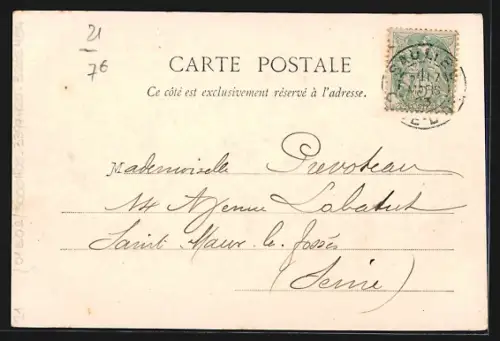 21
76
CARTE POSTALE
Ce côté est exclusivement réservé à l'adresse.
SAULIEU
Mademoiselle Prevoteau
14 Avenue Labatut
Saint Maur les Fossés
(Seine)